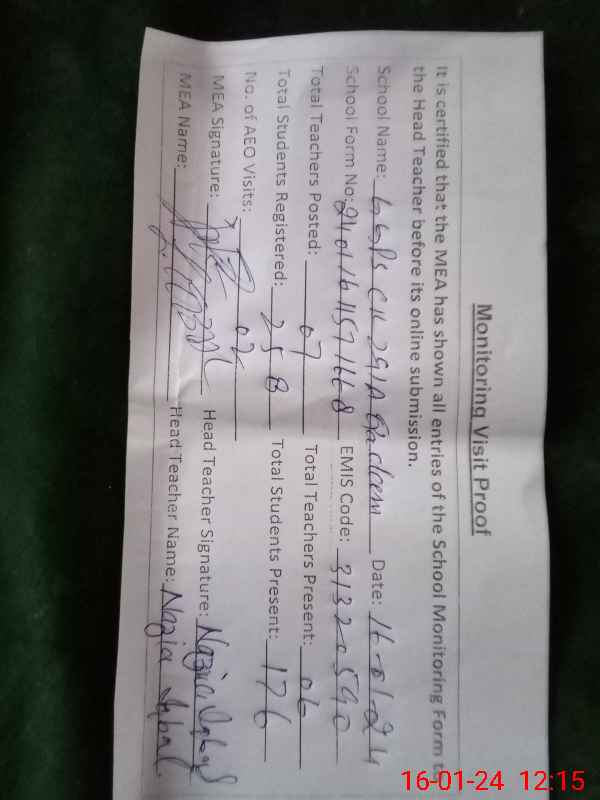 Monitoring Visit Proof
It is certified that the MEA has shown all entries of the School Monitoring Form to
the Head Teacher before its online submission.
School Name: GGPS Date: 16-01-24
School Form No: EMIS Code: 31320590
Total Teachers Posted: 07 Total Teachers Present: 06
Total Students Registered: 258 Total Students Present: 176
No. of AEO Visits: 02
MEA Signature: Head Teacher Signature: Nazia Iqbal
MEA Name: Head Teacher Name: Nazia Iqbal
16-01-24 12:15